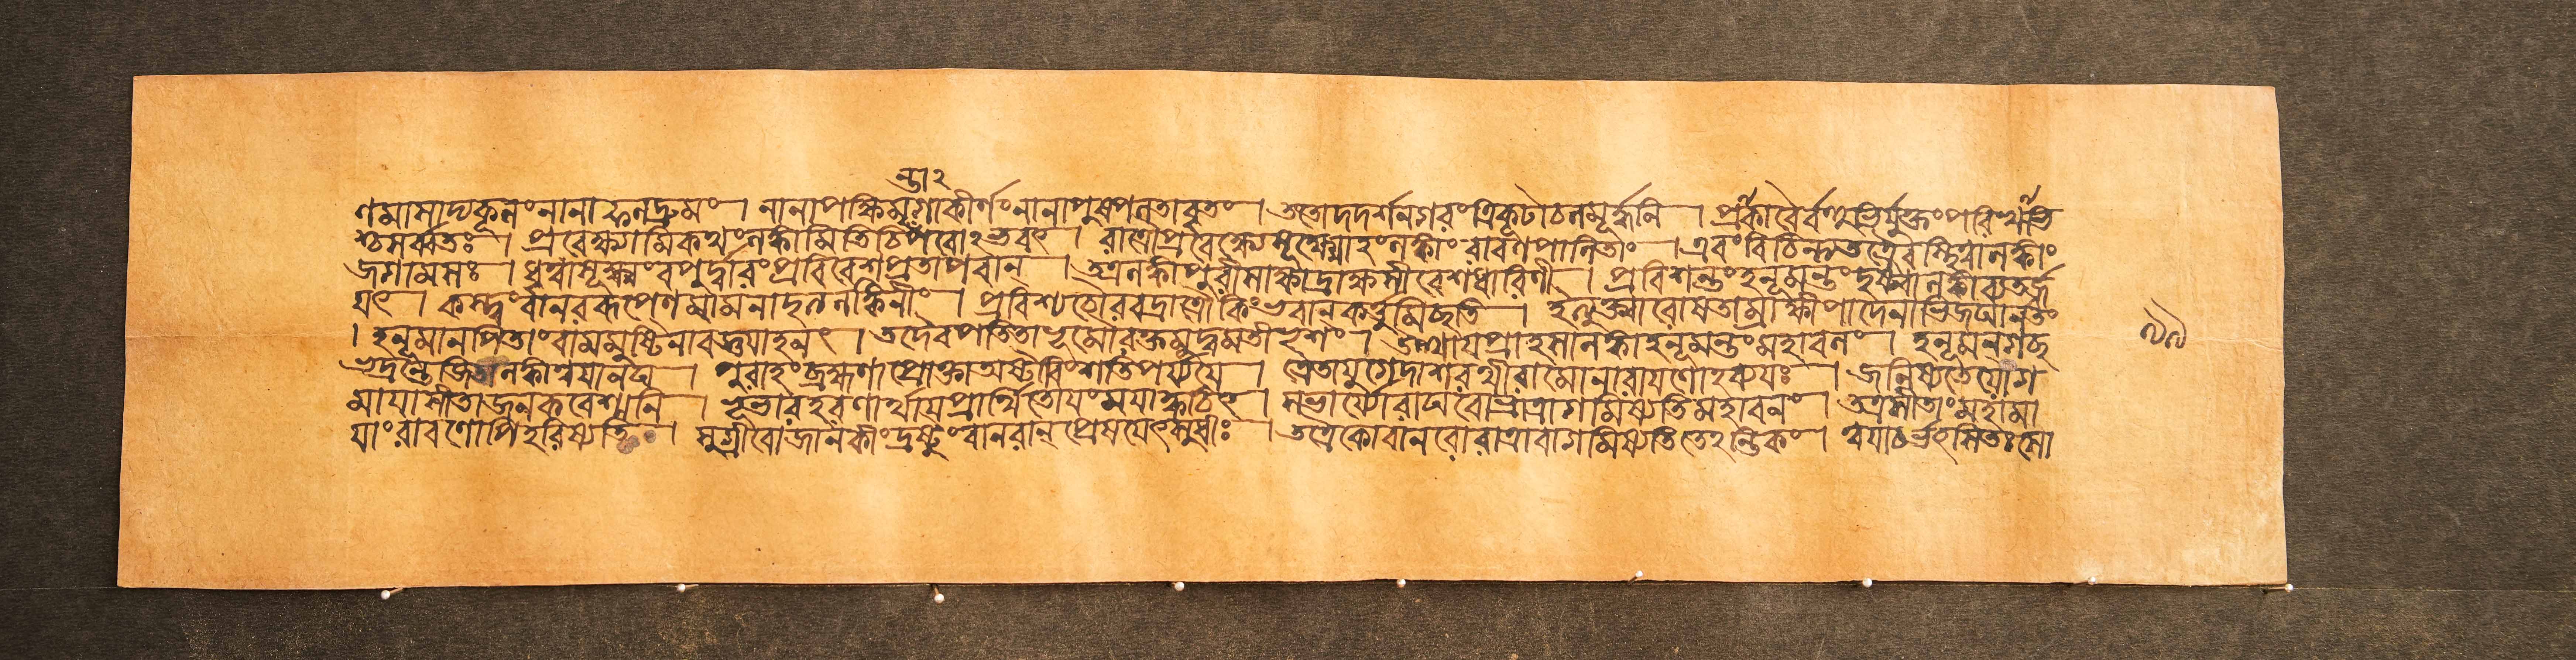 ন্তা২
ণমাসাদ্যকূলংনানাফলদ্ৰুমং। নানাপক্ষিমৃগাকীৰ্ণংনানাপুষ্পলতাবৃতং। ততোদদৰ্শনগৰংত্ৰিকূটাচলমূৰ্দ্ধনি। প্ৰাকাৰৈৰ্বহুভিৰ্যুক্তংপৰিখাভি
শ্চসৰ্ব্বতঃ। প্ৰবেক্ষ্যামিকথংলঙ্কামিতিচিপৰোঽভবৎ। ৰাত্ৰৌপ্ৰবেক্ষ্যেসূক্ষ্মোহংলঙ্কাংৰাবণপালিতাং। এবংবিচিন্ত্যতত্ৰৈবস্থিত্বালঙ্কাং
জগামসঃ। ধৃত্বাসূক্ষ্মংবপুৰ্দ্বাৰংপ্ৰবিবেশপ্ৰতাপবান্। তত্ৰলঙ্কাপুৰীসাক্ষাদ্ৰাক্ষসীবেশধাৰিণী। প্ৰবিশন্তংহনূমন্তংদৃষ্ট্বালঙ্কাব্যতৰ্জ
য়ৎ। কস্ত্বংবানৰৰূপেণমামনাদৃতলঙ্কিনীং। প্ৰবিশ্যচোৰবদ্ৰাত্ৰৌকিংভবানকৰ্ত্তুমিচ্ছতি। ইত্যুক্ত্বাৰোষতাম্ৰাক্ষীপাদেনাভিজঘানতং
। হনূমানপিতাংবামমুষ্টিনাবজ্ঞয়াহনৎ। তদৈবপতিতাভূমৌৰক্তমুদ্বমতীভৃশং। উত্থায়প্ৰাহসালঙ্কাহনূমন্তংমহাবলং। হনূমন্গচ্ছ
ভদ্ৰন্তেজিতালঙ্কাত্বয়ানঘ। পুৰাহংব্ৰহ্মণাপ্ৰোক্তাঅষ্টাবিংশতিপৰ্য্যয়ে। ত্ৰেতাযুগেদাশৰথীৰামোনাৰায়ণোঽব্যয়ঃ। জনিষ্যতেয়োগ
মায়াসীতাজনকবেশ্মনি। ভূভাৰহৰণাৰ্থায়প্ৰাৰ্থিতোয়ংময়াক্বচিৎ। সভাৰ্য্যোৰাঘবোভ্ৰাত্ৰাগমিষ্যতিমহাবনং। তত্ৰসীতাংমহামা
য়াংৰাবণোপিহৰিষ্যতি। সুগ্ৰীবোজানকীংদ্ৰষ্টুংবানৰান্প্ৰেষয়েৎসুধীঃ। তত্ৰৈকোবানৰোৰাত্ৰাবাগমিষ্যতিতেঽন্তিকং। ত্বয়াচভৰ্ৎসিতঃসো